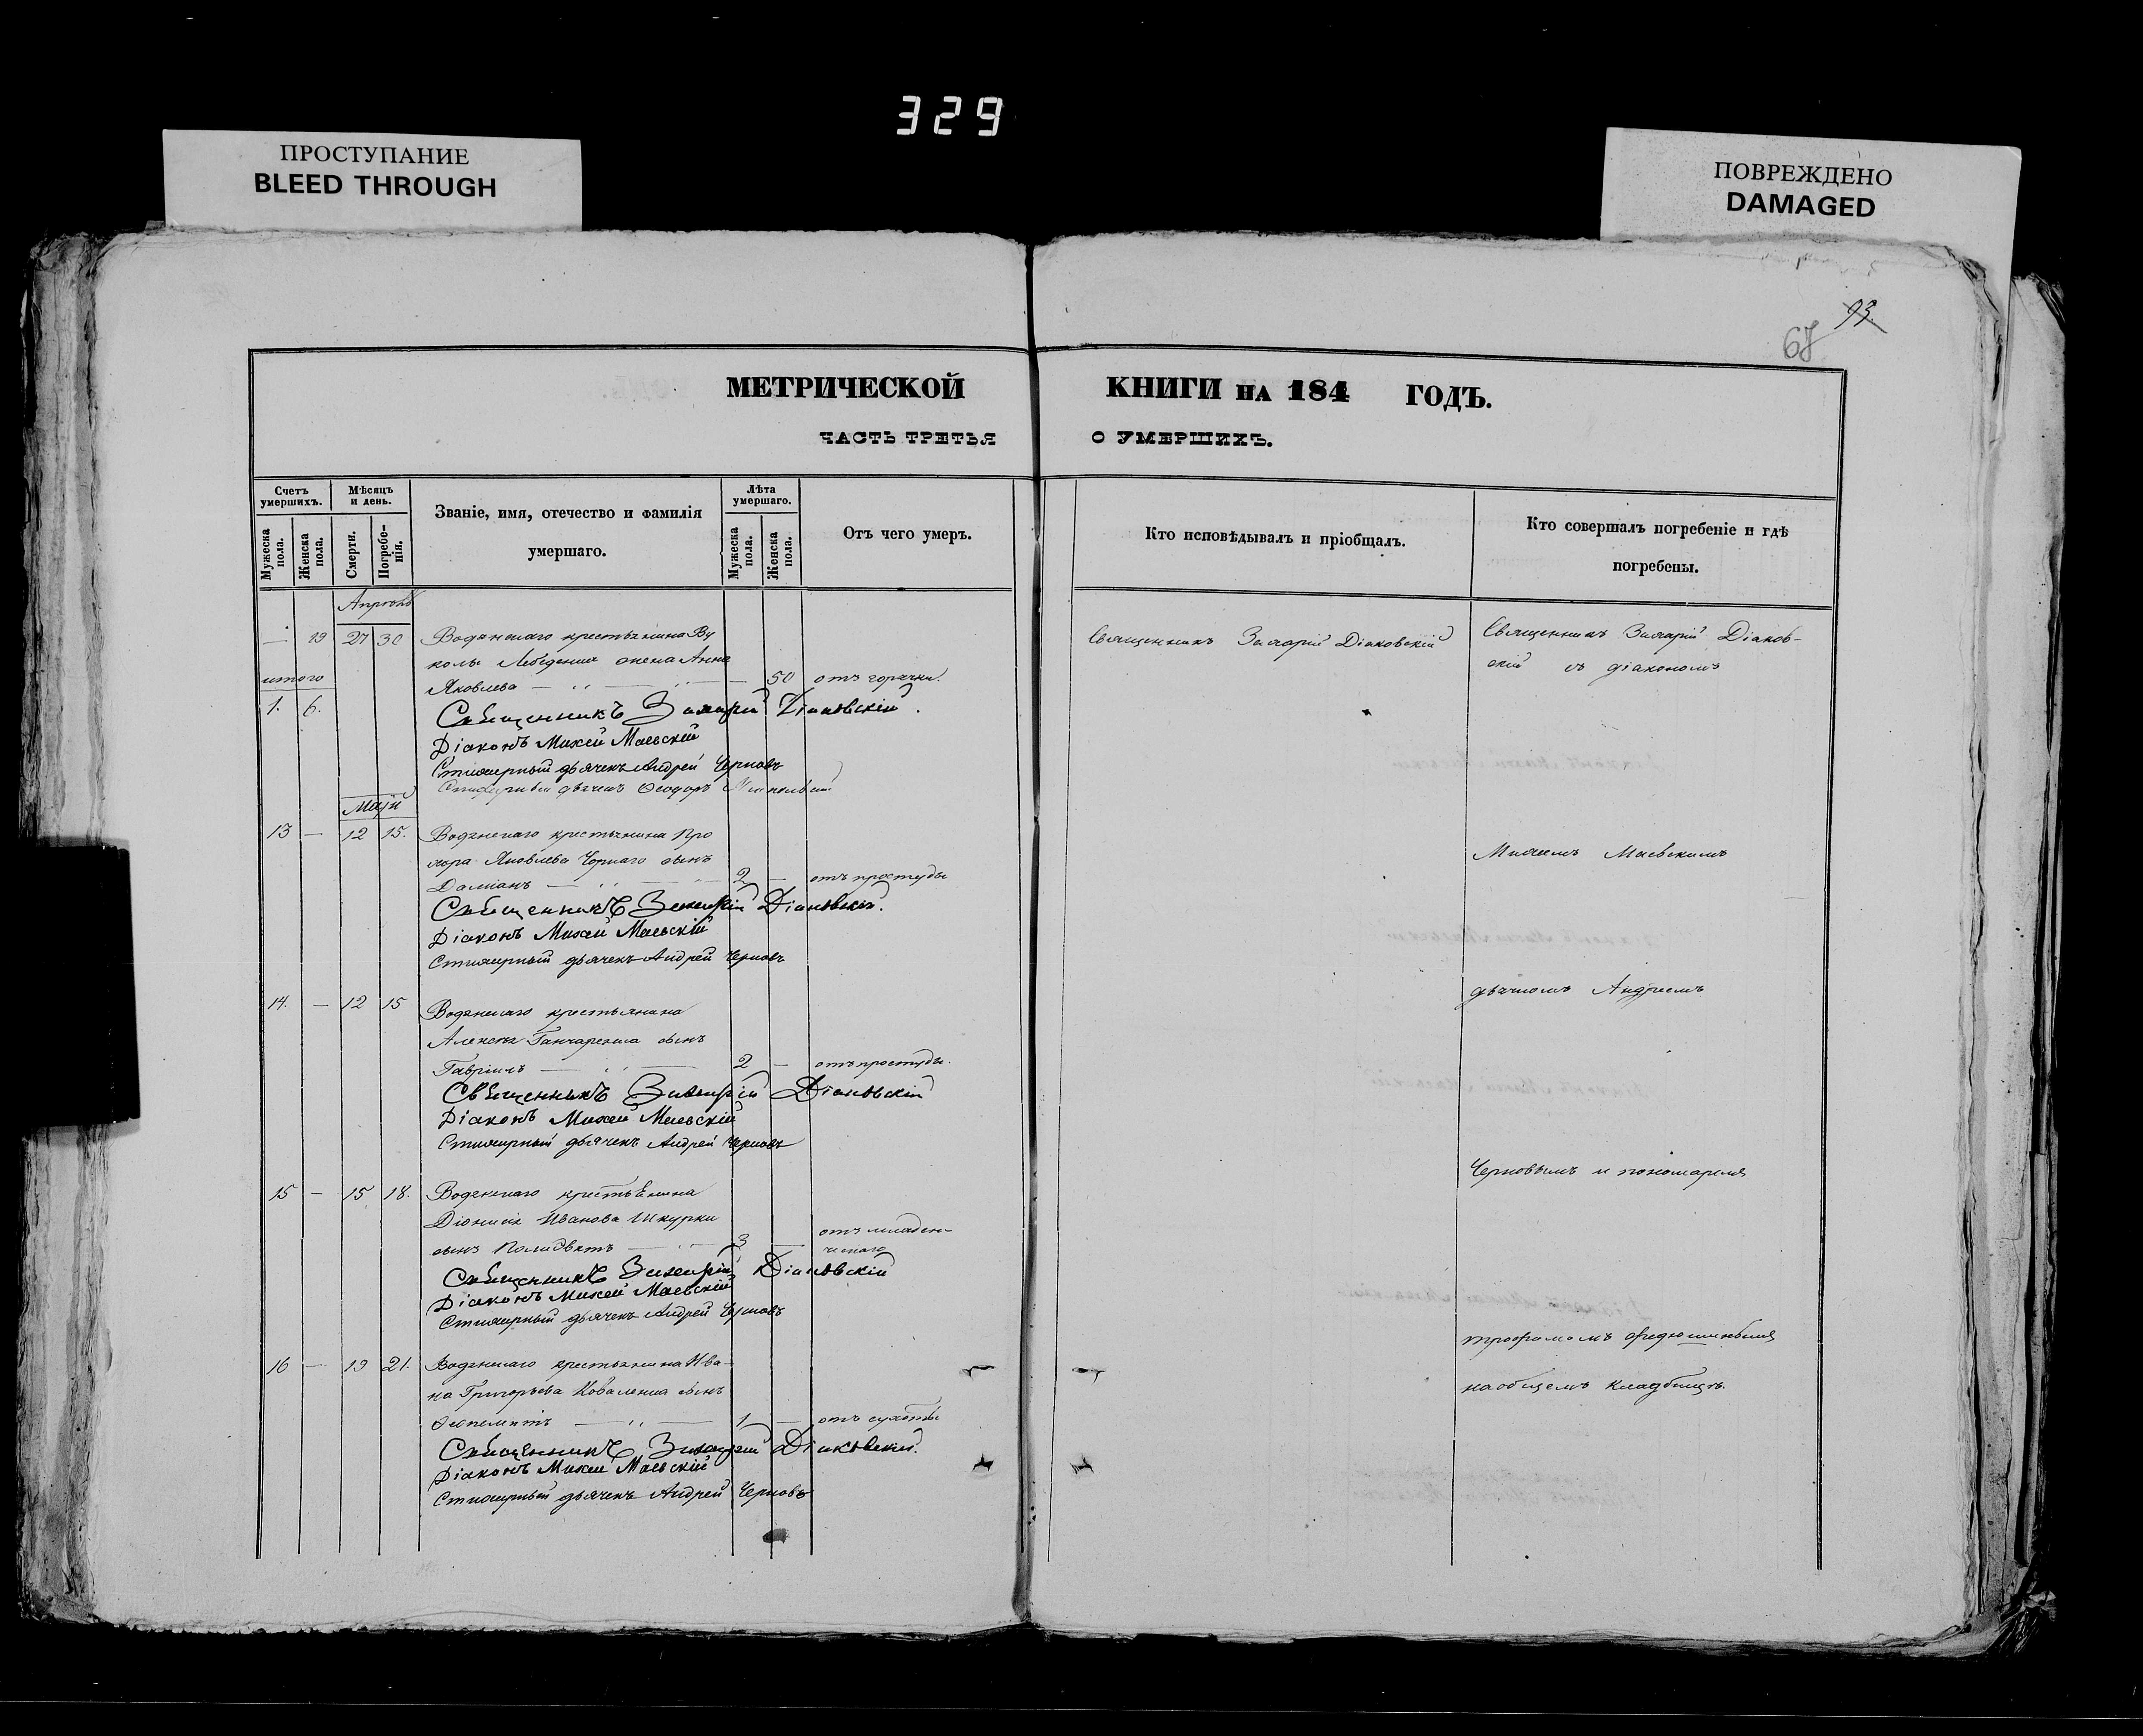 329
ПРОСТУПАНИЕ
BLEED THROUGH
ПОВРЕЖДЕНО
DAMAGED
93.
67
МЕТРИЧЕСКОЙ КНИГИ НА 184 ГОДЪ.
ЧАСТЬ ТРЕТЬЯ О УМЕРШИХЪ.
Счетъ умершихъ.
Мужеска пола.
Женска пола.
Мѣсяцъ и день.
Смерти.
Погребенія.
Званіе, имя, отечество и фамилія
умершаго.
Лѣта умершаго.
Мужеска пола.
Женска пола.
Отъ чего умеръ.
Кто исповѣдывалъ и пріобщалъ.
Кто совершалъ погребеніе и гдѣ
погребены.
Апрѣль
— 19 27 30 Водянскаго крестьянина Ву
колы Лебеденка жена Анна
итого Яковлева — — 50 отъ горячки.
1. 6. Священникъ Захарій Діаковскій.
Діаконъ Михей Маевскій
Стихарный дьячекъ Андрей Черновъ
Стихарный дьячекъ Ѳеодоръ
Май
13 — 12 15. Водянскаго крестьянина Про
хора Яковлева Чорнаго сынъ
Даміанъ — 2 — отъ простуды
Священникъ Захарій Діаковскій.
Діаконъ Михей Маевскій
Стихарный дьячекъ Андрей Черновъ
14. — 12 15 Водянскаго крестьянина
Алексѣя Ганчаренка сынъ
Гавріилъ — 2 — отъ простуды.
Священникъ Захарій Діаковскій
Діаконъ Михей Маевскій
Стихарный дьячекъ Андрей Черновъ
15 — 15 18. Водянскаго крестьянина
Діонисія Иванова Шкурки
сынъ — 3 — отъ младен-
ческаго
Священникъ Захарій Діаковскій
Діаконъ Михей Маевскій
Стихарный дьячекъ Андрей Черновъ
16 — 19 21. Водянскаго крестьянина Ива-
на Григорьева Коваленка сынъ
Ѳеопемптъ — 1 — отъ сухоты
Священникъ Захарій Діаковскій.
Діаконъ Михей Маевскій
Стихарный дьячекъ Андрей Черновъ
Священникъ Захарій Діаковскій
Священникъ Захарій Діаков-
скій съ діакономъ
Михеемъ Маевскимъ
дьячкомъ Андреемъ
Черновымъ и пономаремъ
на общемъ кладбищѣ.